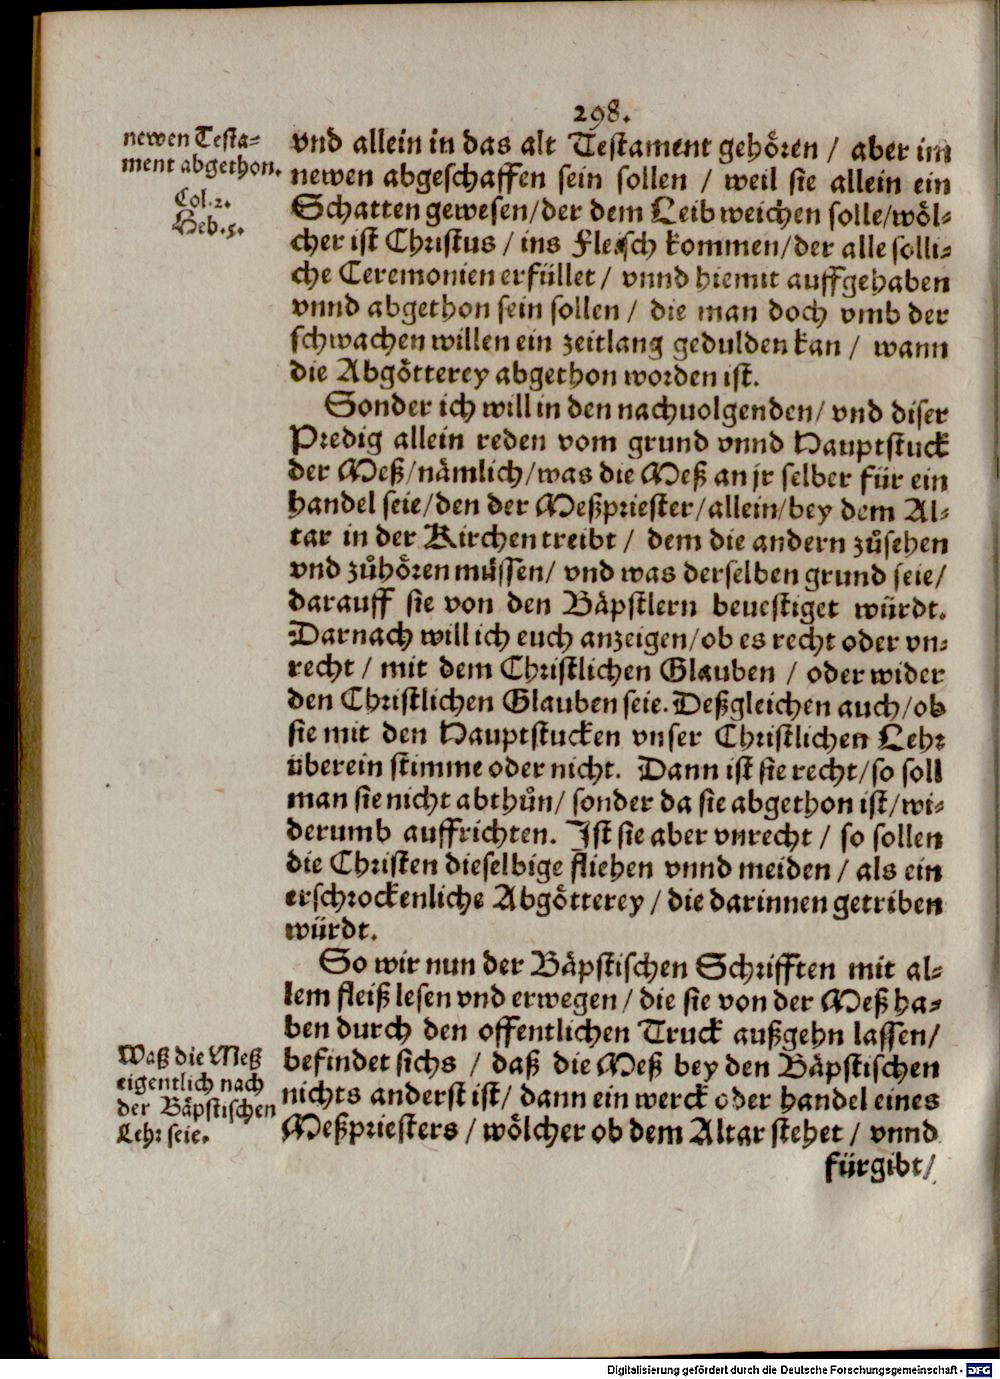 298.
newen Testa=
ment abgethon.
Col.2.
Heb.5.
vnd allein in das alt Testament gehören / aber im
newen abgeschaffen sein sollen / weil sie allein ein
Schatten gewesen/der dem Leib weichen solle/wöl=
cher ist Christus / ins Fleisch kommen/der alle solli=
che Ceremonien erfüllet / vnnd hiemit auffgehaben
vnnd abgethon sein sollen / die man doch vmb der
schwachen willen ein zeitlang gedulden kan / wann
die Abgötterey abgethon worden ist.
Sonder ich will in den nachuolgenden/ vnd diser
Predig allein reden vom grund vnnd Hauptstuck
der Meß/nämlich/was die Meß an jr selber für ein
handel seie/den der Meßpriester/allein/bey dem Al=
tar in der Kirchen treibt / dem die andern zůsehen
vnd zůhören müssen/ vnd was derselben grund seie/
darauff sie von den Bäpstlern beuestiget würdt.
Darnach will ich euch anzeigen/ob es recht oder vn=
recht / mit dem Christlichen Glauben / oder wider
den Christlichen Glauben seie. Deßgleichen auch/ob
sie mit den Hauptstucken vnser Christlichen Lehr
überein stimme oder nicht. Dann ist sie recht/so soll
man sie nicht abthůn/ sonder da sie abgethon ist/wi=
derumb auffrichten. Ist sie aber vnrecht / so sollen
die Christen dieselbige fliehen vnnd meiden / als ein
erschrockenliche Abgötterey / die darinnen getriben
würdt.
So wir nun der Bäpstischen Schrifften mit al=
lem fleiß lesen vnd erwegen / die sie von der Meß ha=
ben durch den offentlichen Truck außgehn lassen/
befindet sichs / daß die Meß bey den Bäpstischen
nichts anderst ist/ dann ein werck oder handel eines
Meßpriesters / wölcher ob dem Altar stehet / vnnd
fürgibt/
Waß die Meß
eigentlich nach
der Bäpstischen
Lehr seie.
Digitalisierung gefördert durch die Deutsche Forschungsgemeinschaft - DFG